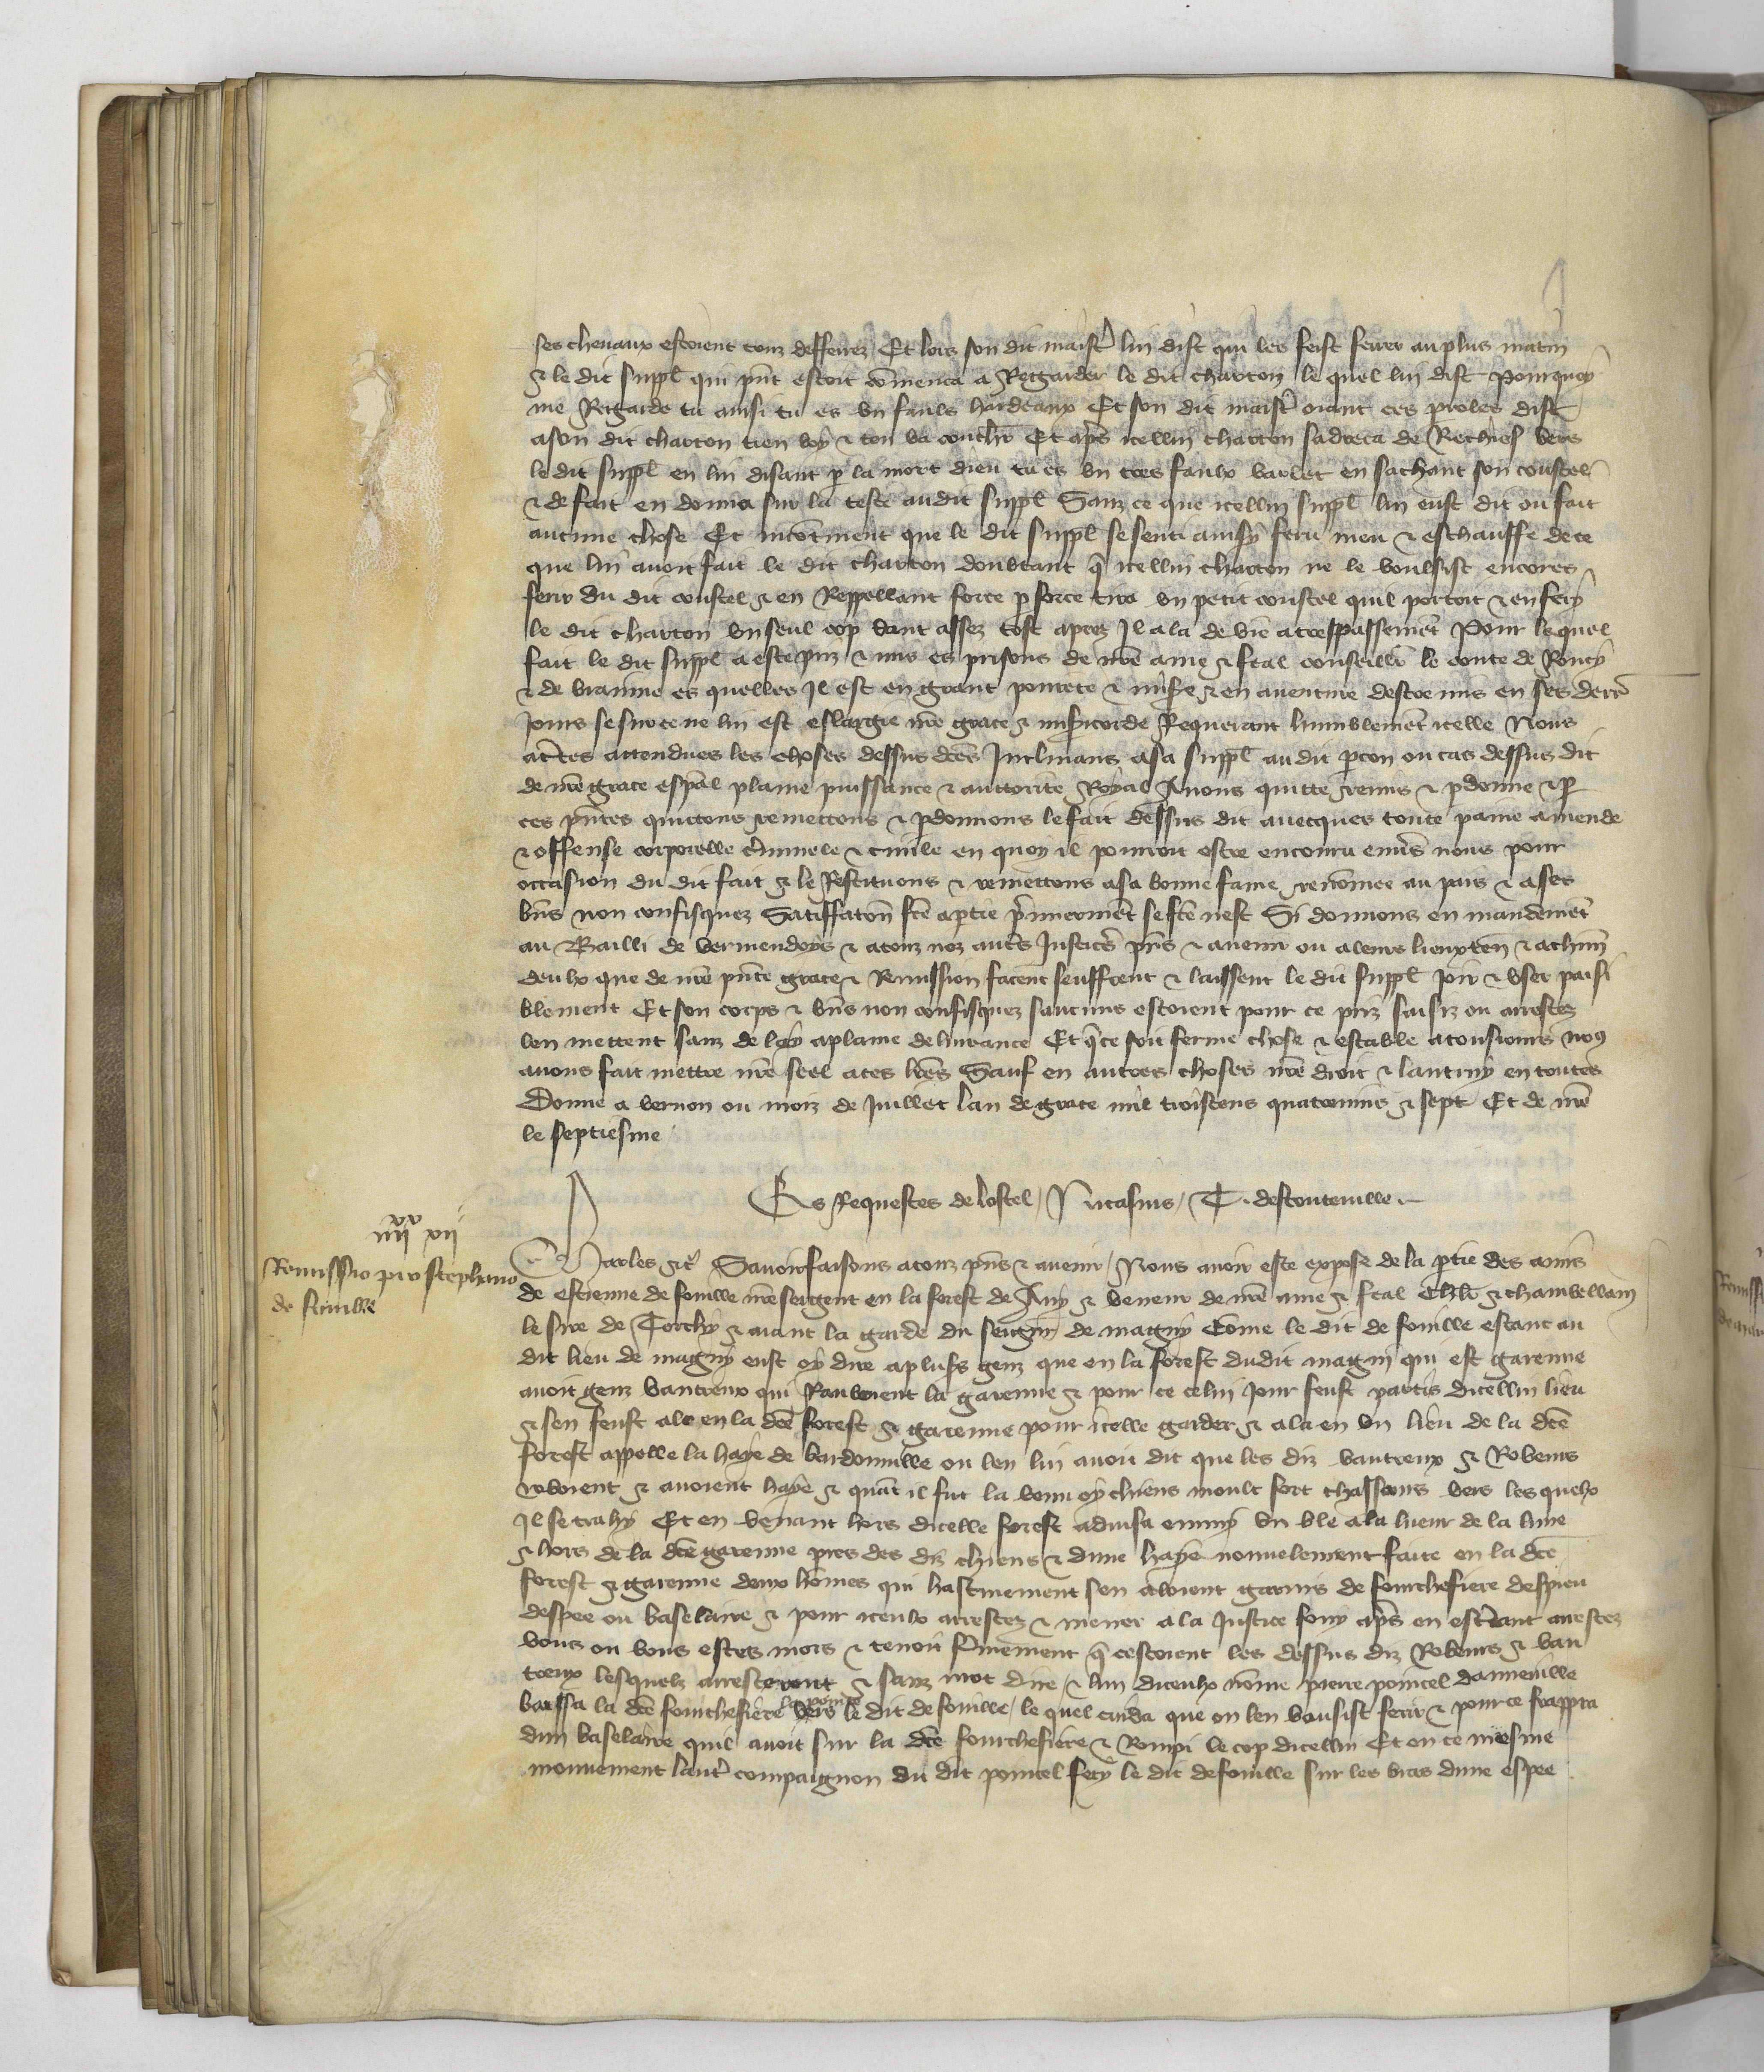 ses chevaux estoient touz defferrez Et lors son dit maistre lui dist qui les feist ferrer au plus matin
& le dit suppl qui pnt estoit comenca a Regarder le dit charton le quel lui dist Pourquoy
me Regarde tu ainsi tu es un faulx hardeaux Et son dit maistre oiant ces proles dist
a son dit charton tien toy & ten va couchr Et aps icellui charton sadreca de Rechief vers
le dit suppl en lui disant p la mort dieu tu es un tres faulx varlet en sachant son coustel
& de fait en donna sur la teste au dit suppl Sanz ce que icellui suppl lui eust dit ou fait
aucune chose Et incontinent que le dit suppl se senti ainsy feru meu & eschauffe de ce
que lui avoit fait le dit charton doubtant q icellui charton ne le voulsist encores
ferir du dit coustel & en Reppellant force p force tira un petit coustel quil portoit & en fery
le dit charton un seul cop dont assez tost apres Il ala de vie a trespassement Pour lequel
fait le dit suppl a este prz & mis es prisons de nre ame & feal conseillr le conte de Roucy
& de brainne es quelles Il est en grant povrete & misere & en aventure destre mis en ses derr
jours se sur ce ne lui est eslargie nre grace & misicorde Requerant humblemet icelle Nous
actes attendues les choses dessus dces Inclinans a sa suppl au dit pcon ou cas dessus dit
de nre grace espal plaine puissance & auttorite Royal Avons quitte remis & pdonne & p
ces pntes quittons remettons & pdonnons le fait dessus dit avecques toute paine amende
& offense corporelle criminele & civile en quoy il pourroit estre encouru envs nous pour
occasion du dit fait & le Restituons & remettons a sa bonne fame renomee au pais & a ses
bns non confisquez Satiffaton fce a ptie primieremet se fce nest Si donnons en mandemet
au Bailli de vermendoys & a touz noz autrs Justicrs pns & avenir ou a leurs lieuxten & a chun
deulx que de nre pnte grace & Remission facent seuffrent & laissent le dit suppl joir & user paisi
blement Et son corps & bns non confisquez saucuns estoient pour ce priz saisiz ou arrestez
len mettent sanz delay a plaine delivrance Et q ce soit ferme chose & estable a tousiours nous
avons fait mettre nre seel a ces lres Sauf en autres choses nre droit & lautruy en toutes
Donne a vernon ou moiz de juillet lan de grace mil troiscens quatrevins & sept Et de nre
le septiesme
Es Requestes de lostel / Nicasius / T. destouteville
iiii xx xvii
Remissio pro stephano
de foville
Charles &c Savoir faisons a touz pns & avenir / Nous avoir este expose de la ptie des amis
de estienne de foville nre sergent en la forest de & veneur de nre ame & feal chlr & chambellam
le sire de Torchy & aiant la garde du seigneur de magny Come le dit de foville estant au
dit lieu de magny eust oy dire a plusrs genz que en la forest dudit magny qui est garenne
avoit genz vantreux qui Rauboient la garenne & pour ce celui jour feust partis dicellui lieu
& sen feust ale en la dce forest & garenne pour icelle garder & ala en un lieu de la dce
forest appelle la haye de bardouville ou len lui avoit dit que les diz vantreux & Robeurs
roboient & avoient haye & quat il fut la venu oy chiens moult fort chassans vers les quelx
Il se trahy Et en venant hors dicelle forest advisa emmy un ble a la lueur de la lune
& hors de la dce garenne pres des diz chiens & dune haye nouvelement faite en la dce
forest & garenne deux homes qui hastivement sen aloient garnis de fourchefiere despieu
despee ou baselaire & pour iceulx arrestez & mener a la Justice fouy aps en escriant arrestez
vous ou vous estes mors & tenoit fermement q cestoient les dessus diz Robeurs & van
treux lesquelz arresterent & sanz mot dire / & lun diceulx nome pierre poincel danneville
baissa la dce fourchefiere la pointe vers le dit de foville / le quel cuida que on len vousist ferir & pour ce frappa
dun baselaire quil avoit sur la dce fourchefiere & Rompi le cop dicellui Et en ce mesme
mouvement lautr compaignon du dit poincel fery le dit de foville sur les bras dune espee